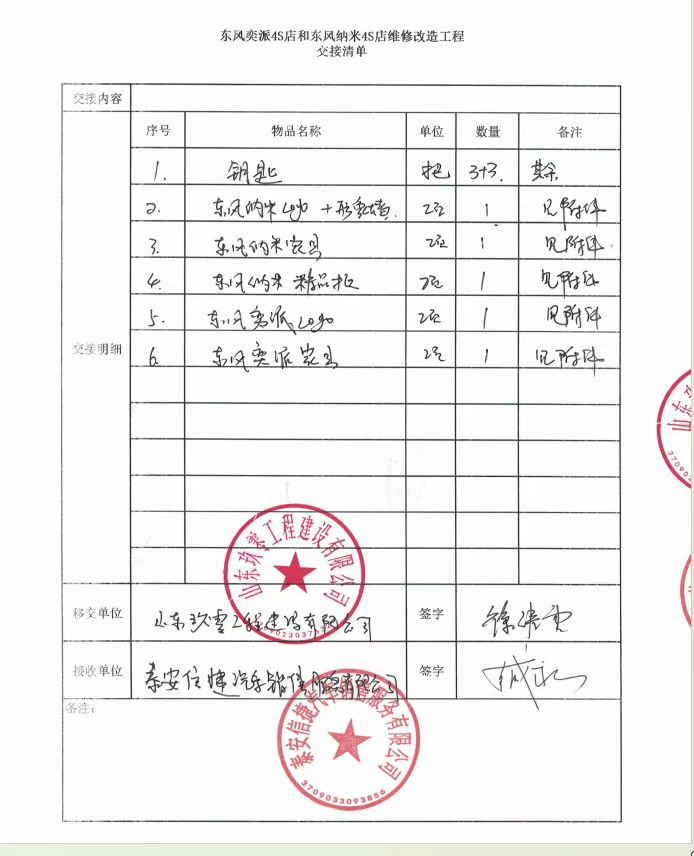 东风奕派4S店和东风纳米4S店维修改造工程
交接清单
交接内容
交接明细
序号 物品名称 单位 数量 备注
1. 钥匙 把 3+3.
2. 东风纳米Logo + 形象墙 1 见附件
3. 东风纳米 1 见附件
4. 东风纳米 精品柜 1 见附件
5. 东风奕派Logo 1 见附件
6. 东风奕派 1 见附件
移交单位 山东玖零工程建设有限公司 签字
接收单位 泰安信捷汽车销售服务有限公司 签字
备注:
工程建设有限公司
泰安信捷汽车销售服务有限公司
3709033093856
山东玖